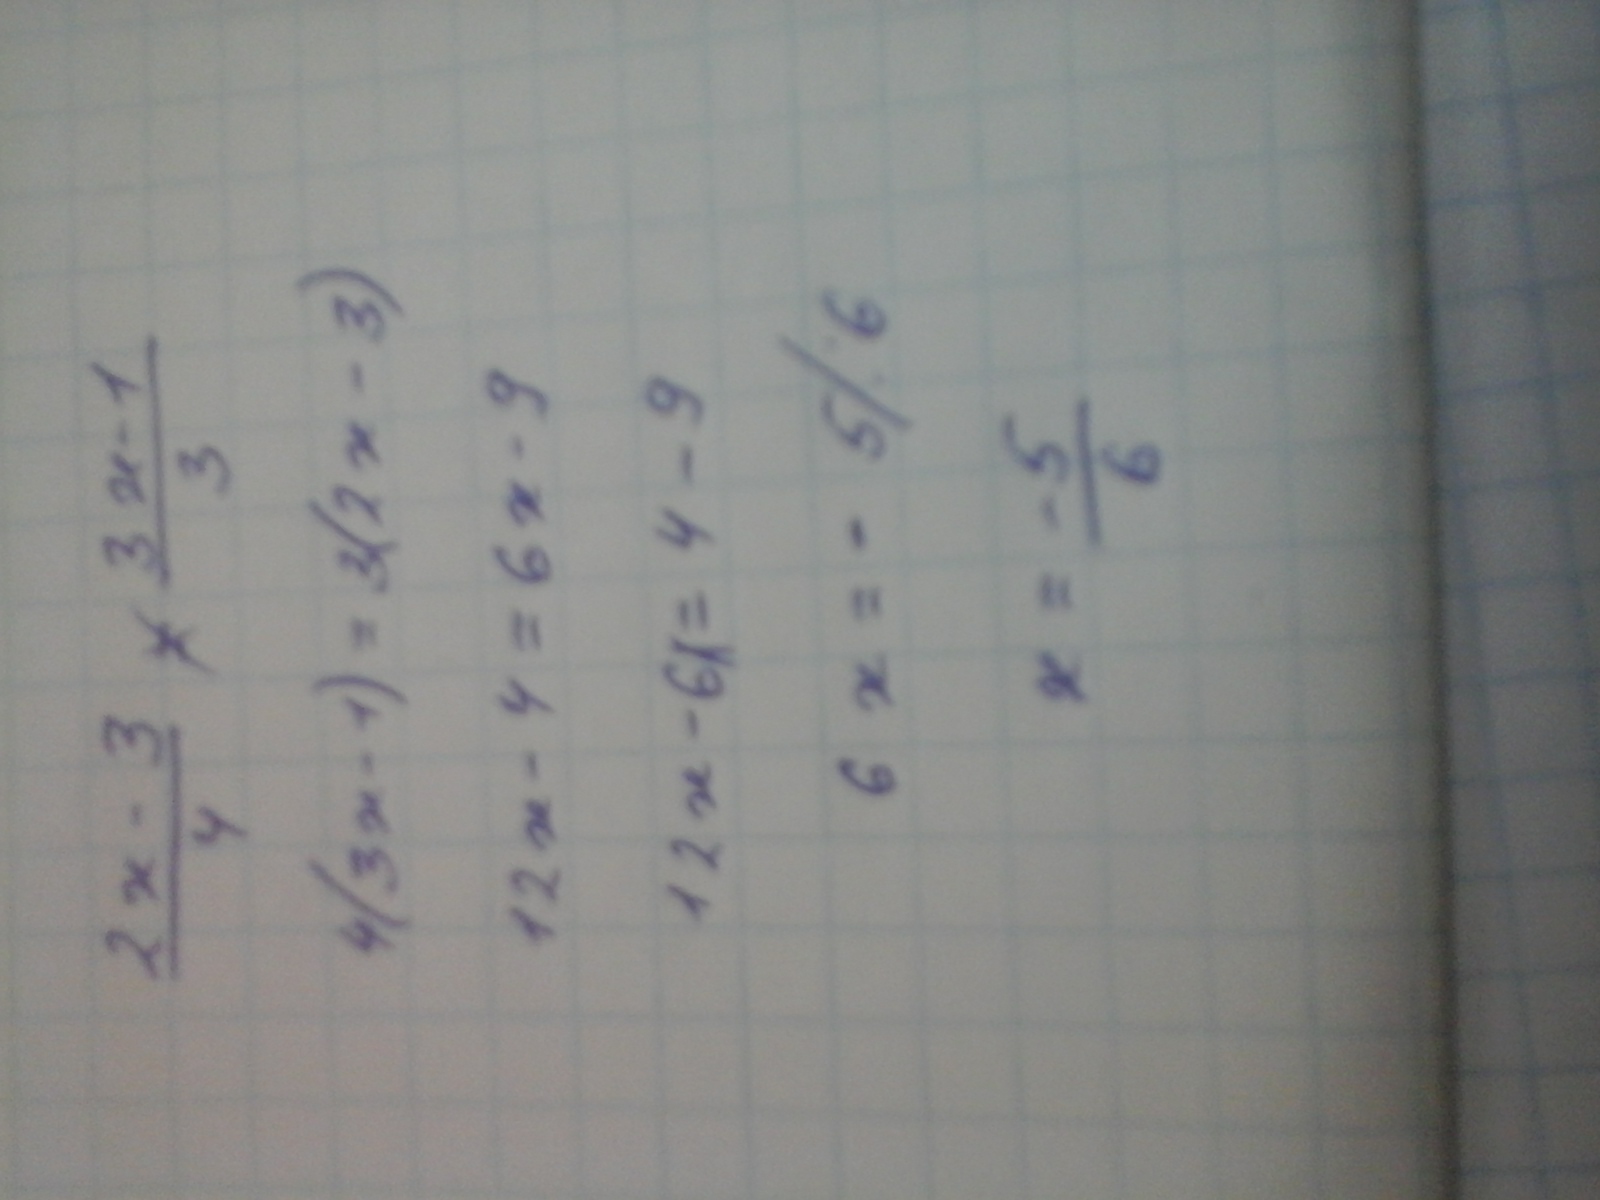 2x - 3 / 4 x 3x - 1 / 3
4(3x - 1) = 3(2x - 3)
12x - 4 = 6x - 9
12x - 6 = 4 - 9
6x = - 5 / : 6
x = - 5 / 6